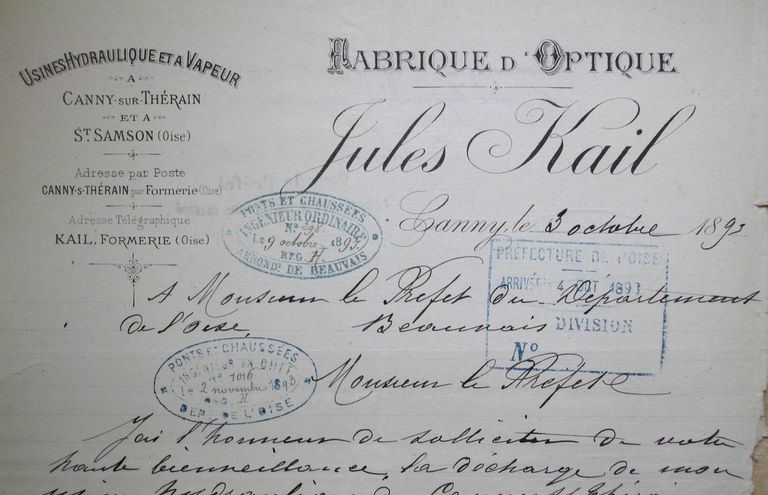 USINES HYDRAULIQUE ET A VAPEUR
A
CANNY-SUR-THÉRAIN
ET A
ST SAMSON (Oise)
Adresse par Poste
CANNY-S-THÉRAIN par Formerie (Oise)
Adresse Télégraphique
KAIL, FORMERIE (Oise)
FABRIQUE D'OPTIQUE
Jules Kail
Canny, le 3 octobre 1893
PONTS ET CHAUSSÉES
INGÉNIEUR ORDINAIRE
No
Le 9 octobre 1893.
REG. H
ARRONDt DE BEAUVAIS
PRÉFECTURE DE L'OISE
ARRIVÉE 4 OCT 1893
DIVISION
No
A Monsieur le Préfet du Département
de l'Oise, Beauvais
PONTS ET CHAUSSÉES
INGÉNIEUR EN CHEF
No 1016
Le 2 novembre 1893
REG. H
DEPt DE L'OISE
Monsieur le Préfet
J'ai l'honneur de solliciter de votre
haute bienveillance, la décharge de mon
usine hydraulique de Canny s/ Thérain